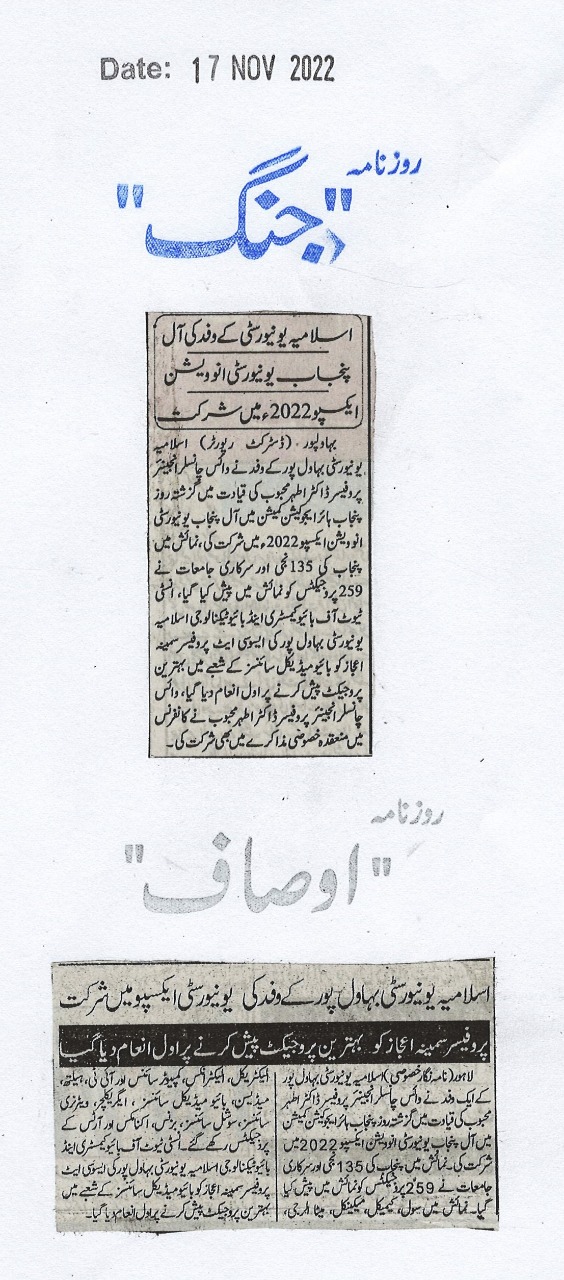 Date: 17 NOV 2022
روزنامہ
"جنگ"
اسلامیہ یونیورسٹی کے وفد کی آل
پنجاب یونیورسٹی انوویشن
ایکسپو 2022ء میں شرکت
بہاولپور (ڈسٹرکٹ رپورٹر) اسلامیہ
یونیورسٹی بہاول پور کے وفد نے وائس چانسلر انجینئر
پروفیسر ڈاکٹر اطہر محبوب کی قیادت میں گزشتہ روز
پنجاب ہائر ایجوکیشن کمیشن میں آل پنجاب یونیورسٹی
انوویشن ایکسپو 2022ء میں شرکت کی، نمائش میں
پنجاب کی 135 نجی اور سرکاری جامعات نے
259 پروجیکٹس کو نمائش میں پیش کیا گیا، انسٹی
ٹیوٹ آف بائیو کیمسٹری اینڈ بائیو ٹیکنالوجی اسلامیہ
یونیورسٹی بہاول پور کی ایسوسی ایٹ پروفیسر سمینہ
اعجاز کو بائیو میڈیکل سائنسز کے شعبے میں بہترین
پروجیکٹ پیش کرنے پر اول انعام دیا گیا، وائس
چانسلر انجینئر پروفیسر ڈاکٹر اطہر محبوب نے کانفرنس
میں منعقدہ خصوصی مذاکرے میں بھی شرکت کی۔
روزنامہ
"اوصاف"
اسلامیہ یونیورسٹی بہاول پور کے وفد کی یونیورسٹی ایکسپو میں شرکت
پروفیسر سمینہ اعجاز کو بہترین پروجیکٹ پیش کرنے پر اول انعام دیا گیا
لاہور (نامہ نگار خصوصی) اسلامیہ یونیورسٹی بہاول پور
کے ایک وفد نے وائس چانسلر انجینئر پروفیسر ڈاکٹر اطہر
محبوب کی قیادت میں گزشتہ روز پنجاب ہائر ایجوکیشن کمیشن
میں آل پنجاب یونیورسٹی انوویشن ایکسپو 2022 میں
شرکت کی۔ نمائش میں پنجاب کی 135 نجی اور سرکاری
جامعات نے 259 پروجیکٹس کو نمائش میں پیش کیا
گیا۔ نمائش میں سول، کیمیکل، میکینکل، میٹا لرجی،
الیکٹریکل، الیکٹرانکس، کمپیوٹر سائنس اور آئی ٹی، ہیلتھ،
میڈیسن، بائیو میڈیکل سائنسز، ایگریکلچر، ویٹرنری
سائنسز، سوشل سائنسز، بزنس، اکنامکس اور آرٹس کے
پروجیکٹس رکھے گئے۔ انسٹی ٹیوٹ آف بائیو کیمسٹری اینڈ
بائیو ٹیکنالوجی اسلامیہ یونیورسٹی بہاول پور کی ایسوسی ایٹ
پروفیسر سمینہ اعجاز کو بائیو میڈیکل سائنسز کے شعبے میں
بہترین پروجیکٹ پیش کرنے پر اول انعام دیا گیا۔